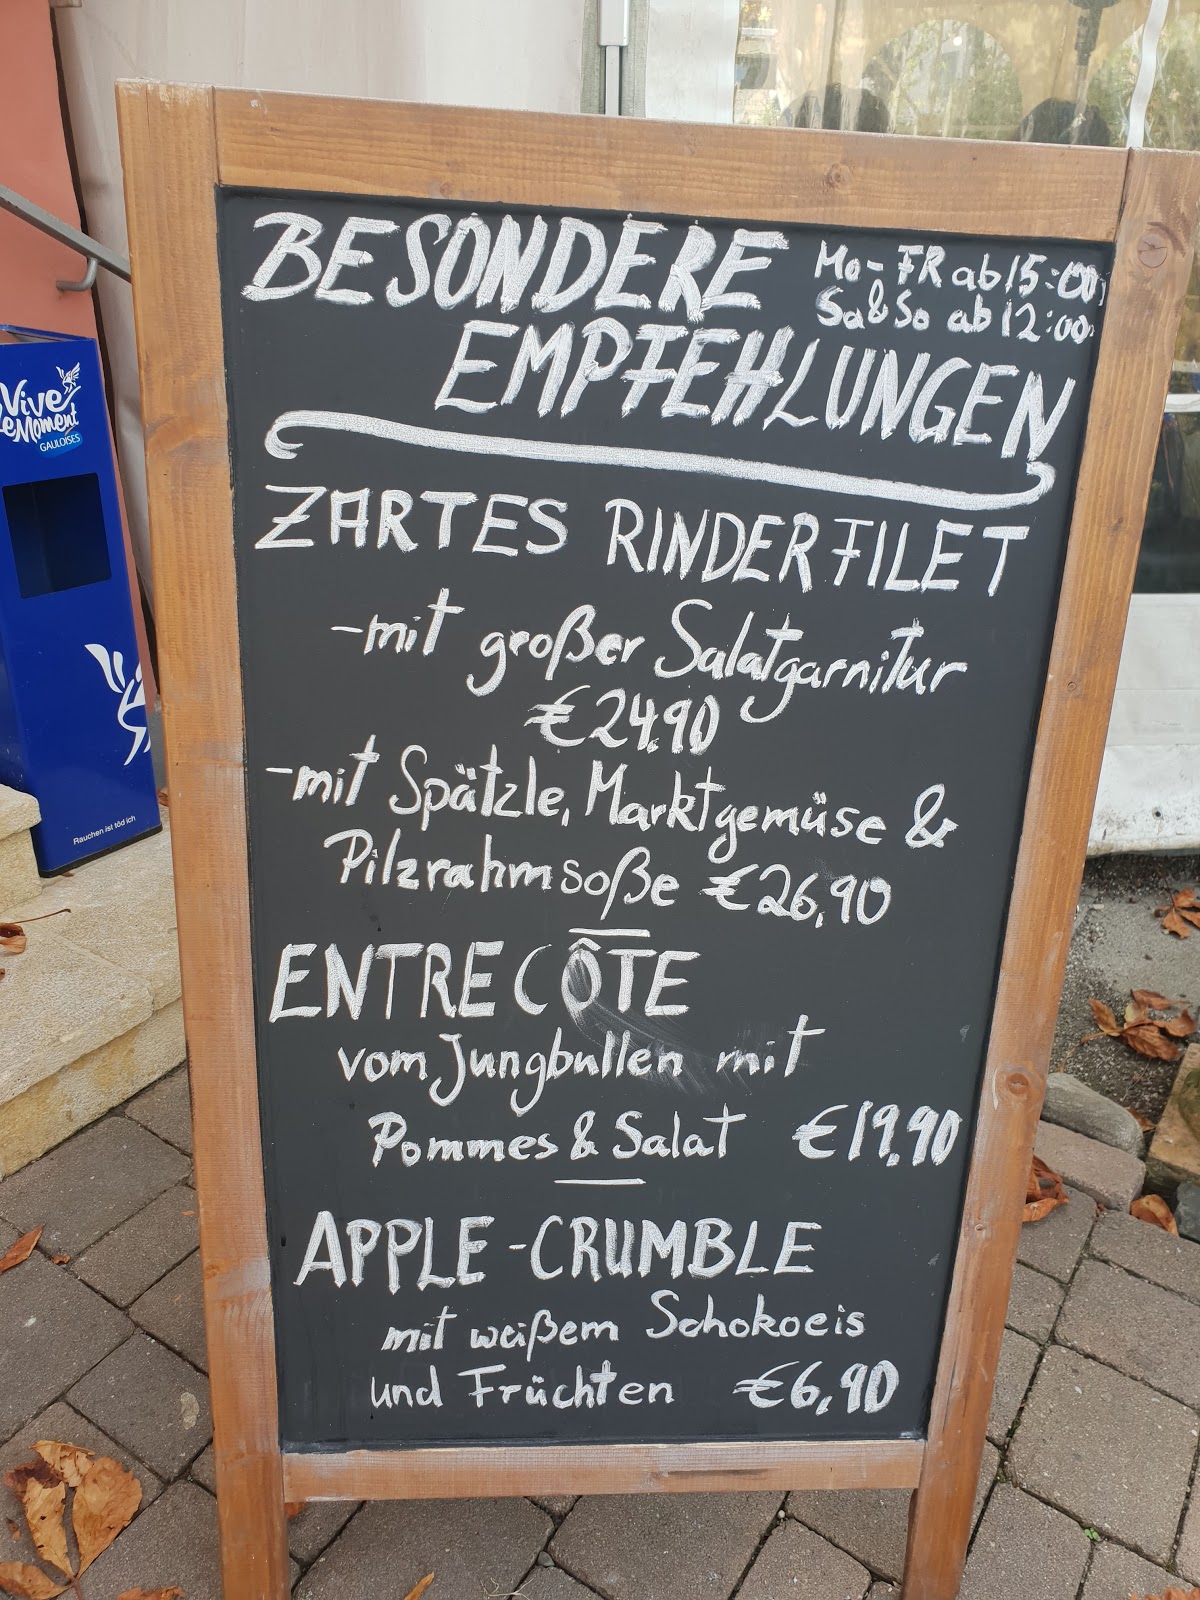 BESONDERE
Mo-FR ab 15:00
Sa & So ab 12:00
EMPFEHLUNGEN
ZARTES RINDERFILET
-mit großer Salatgarnitur
€24.90
-mit Spätzle, Marktgemüse &
Pilzrahmsoße €26,90
ENTRECÔTE
vom Jungbullen mit
Pommes & Salat €19.90
APPLE-CRUMBLE
mit weißem Schokoeis
und Früchten €6,90
Vive
le Moment
GAULOISES
Rauchen ist tödlich